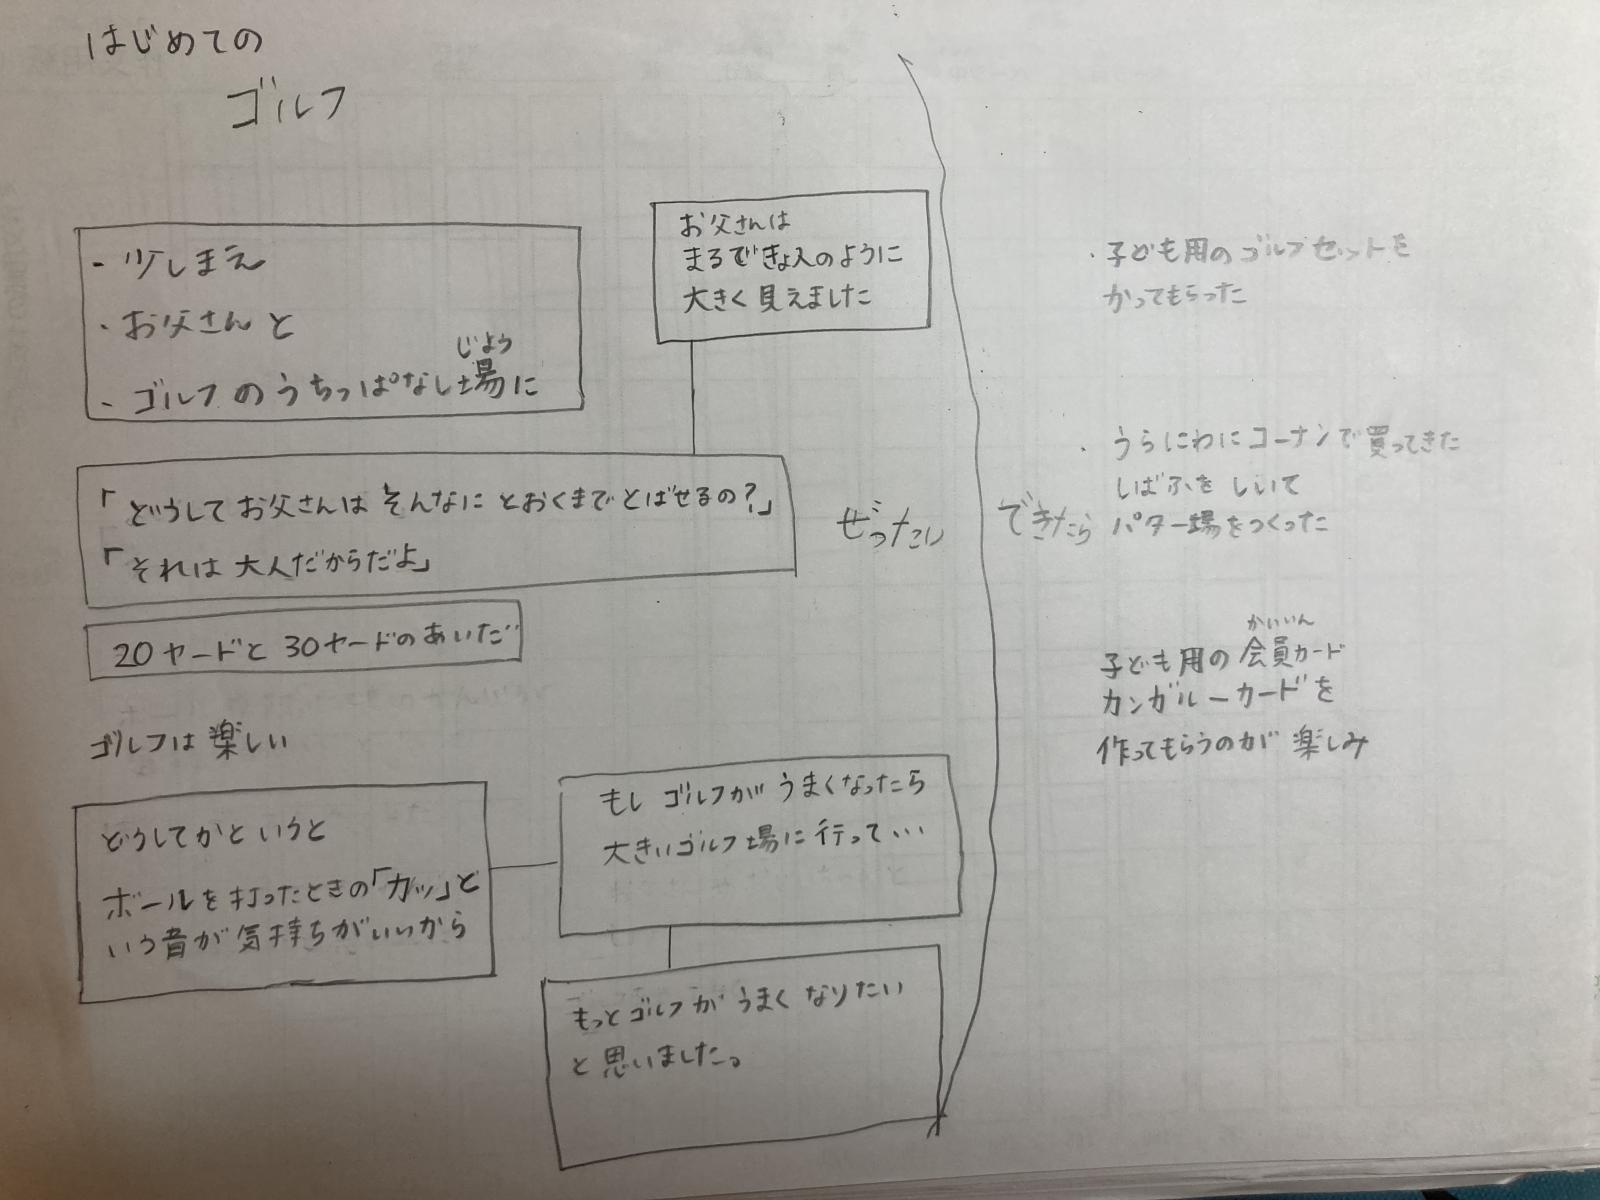 はじめての
ゴルフ
・少しまえ
・お父さんと
・ゴルフのうちっぱなし場に
じょう
お父さんは
まるできょ人のように
大きく見えました
「どうしてお父さんはそんなにとおくまでとばせるの?」
「それは大人だからだよ」
20ヤードと30ヤードのあいだ
ゴルフは楽しい
どうしてかというと
ボールを打ったときの「カッ」と
いう音が気持ちがいいから
もしゴルフがうまくなったら
大きいゴルフ場に行って…
もっとゴルフがうまくなりたい
と思いました。
ぜったい
できたら
・子ども用のゴルフセットを
かってもらった
・うらにわにコーナンで買ってきた
しばふをしいて
パター場をつくった
かいいん
子ども用の会員カード
カンガルーカードを
作ってもらうのが楽しみ